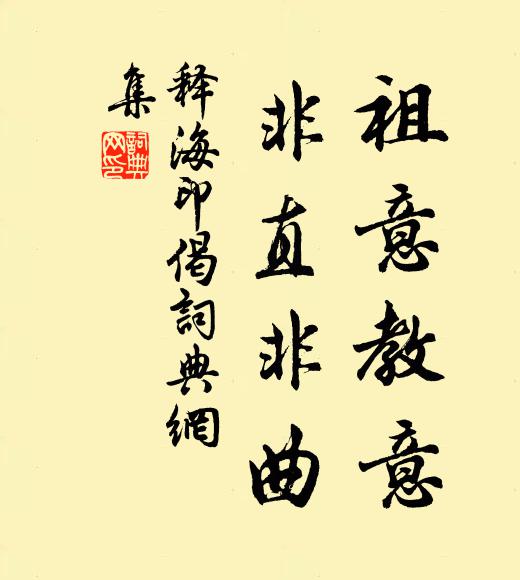 祖意教意
非直非曲
释海印偈詞典網
集
詞典网印